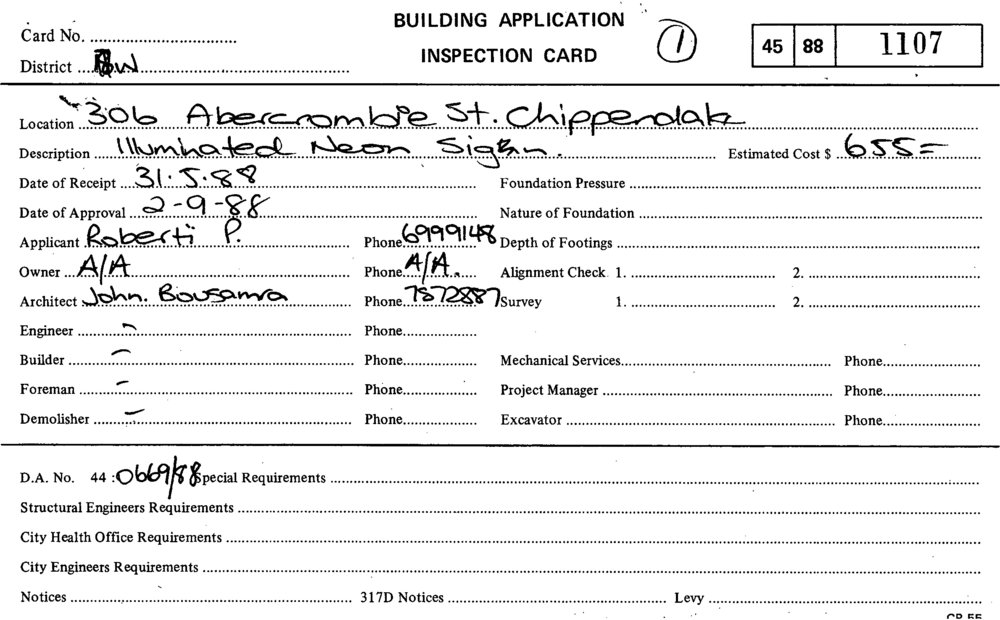 BUILDING APPLICATION
Card No. 1 45 88 1107
INSPECTION CARD
District
Location 306 Abercrombie St. Chippendale
Description Illuminated Neon Sign. Estimated Cost $ 655=
Date of Receipt 31.5.88 Foundation Pressure
Date of Approval 2-9-88 Nature of Foundation
Applicant Roberti P. Phone 6999148 Depth of Footings
Owner A/A Phone A/A. Alignment Check 1. 2.
Architect John. Bousamra Phone 7872887 Survey 1. 2.
Engineer - Phone
Builder - Phone Mechanical Services Phone
Foreman - Phone Project Manager Phone
Demolisher - Phone Excavator Phone
D.A. No. 44 : 0669/88 Special Requirements
Structural Engineers Requirements
City Health Office Requirements
City Engineers Requirements
Notices 317D Notices Levy
CP 55